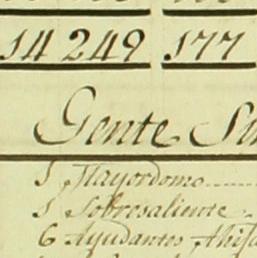 14 249 177
Gente
1 Mayordomo
1 Sobresaliente
6 Ayudantes